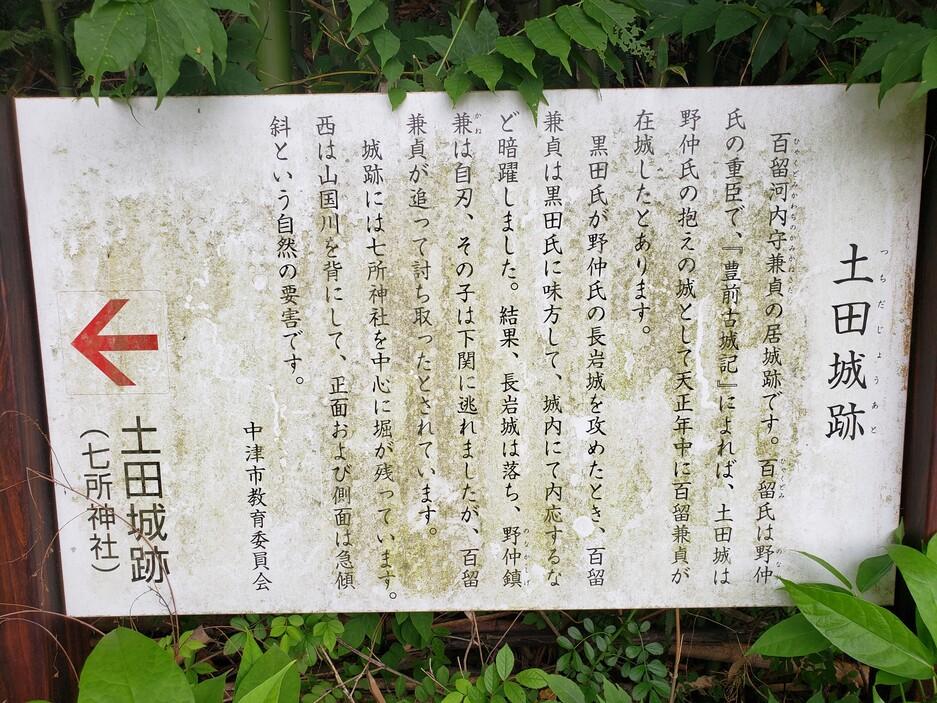 土田城跡
つちだじょうあと
百留河内守兼貞の居城跡です。百留氏は野仲
氏の重臣で、『豊前古城記』によれば、土田城は
野仲氏の抱えの城として天正年中に百留兼貞が
在城したとあります。
黒田氏が野仲氏の長岩城を攻めたとき、百留
兼貞は黒田氏に味方して、城内にて内応するな
ど暗躍しました。結果、長岩城は落ち、野仲鎮
兼は自刃、その子は下関に逃れましたが、百留
兼貞が追って討ち取ったとされています。
城跡には七所神社を中心に堀が残っています。
西は山国川を背にして、正面および側面は急傾
斜という自然の要害です。
中津市教育委員会
土田城跡
（七所神社）